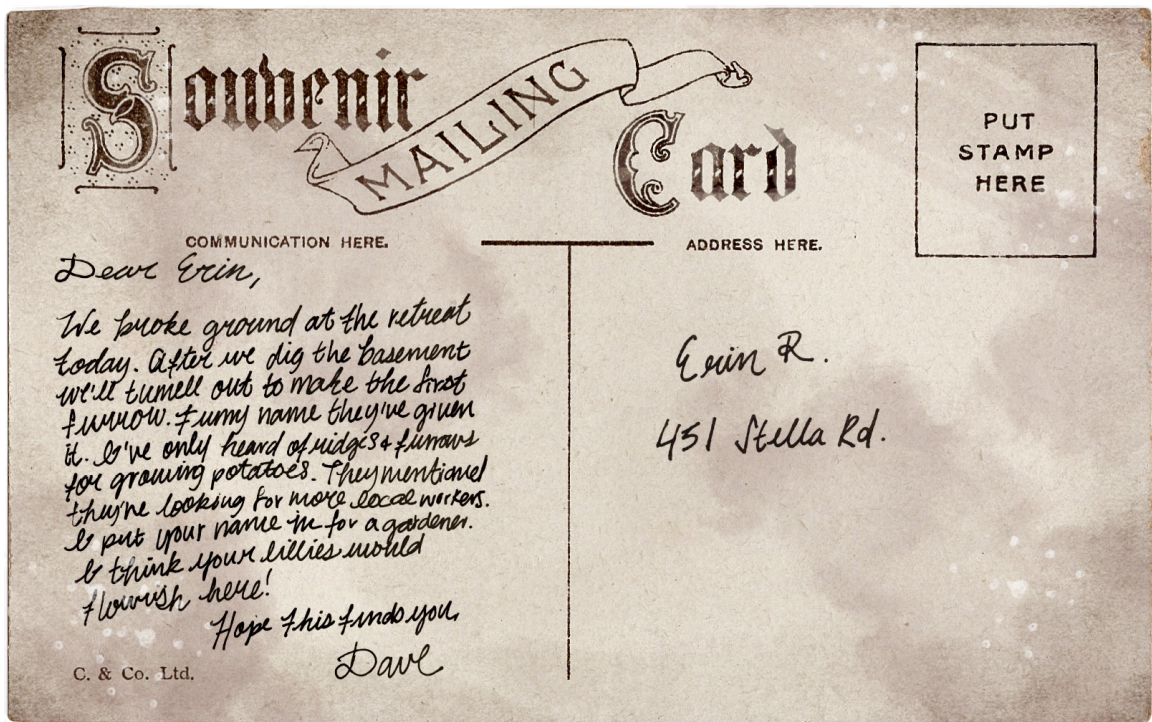 Souvenir
MAILING
Card
PUT
STAMP
HERE
COMMUNICATION HERE.
ADDRESS HERE.
Dear Erin,
We broke ground at the retreat
today. After we dig the basement
we'll tunnell out to make the first
furrow. Funny name they've given
it. I've only heard of ridges & furrows
for growing potatoes. They mentioned
they're looking for more local workers.
I put your name in for a gardener.
I think your lillies would
flourish here!
Hope this finds you,
Dave
Erin R.
451 Stella Rd.
C. & Co. Ltd.